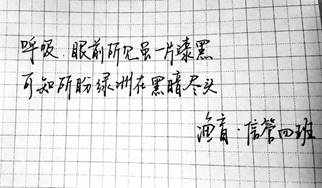 呼吸.眼前所见虽一片漆黑
可知所盼绿洲在黑暗尽头
渔育·信管四班